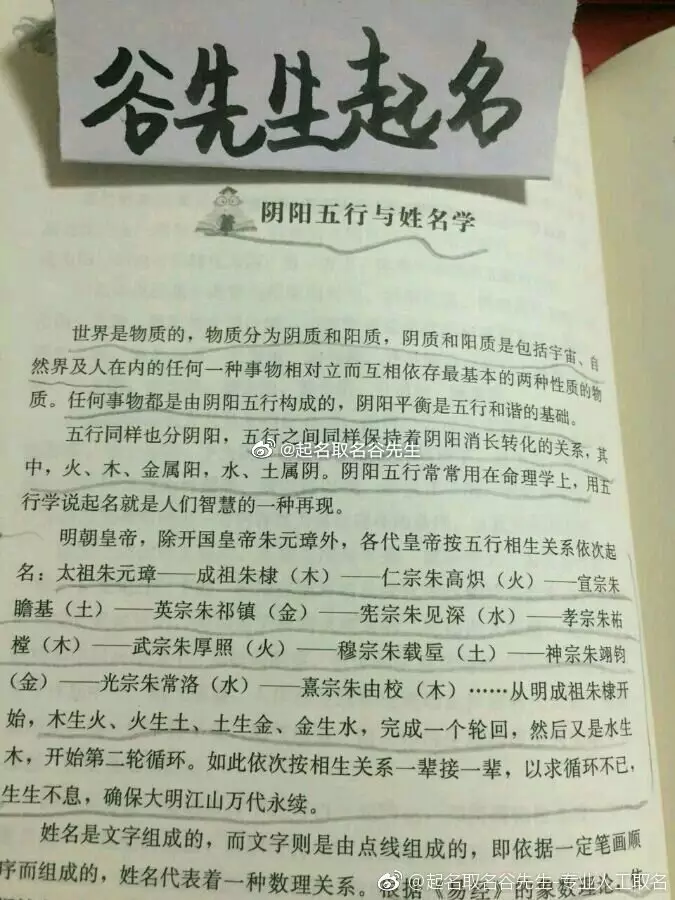 谷先生起名
阴阳五行与姓名学
世界是物质的，物质分为阴质和阳质，阴质和阳质是包括宇宙、自
然界及人在内的任何一种事物相对立而互相依存最基本的两种性质的物
质。任何事物都是由阴阳五行构成的，阴阳平衡是五行和谐的基础。
五行同样也分阴阳，五行之间同样保持着阴阳消长转化的关系，其
@起名取名谷先生
中，火、木、金属阳，水、土属阴。阴阳五行常常用在命理学上，用五
行学说起名就是人们智慧的一种再现。
明朝皇帝，除开国皇帝朱元璋外，各代皇帝按五行相生关系依次起
名：太祖朱元璋——成祖朱棣（木）——仁宗朱高炽（火）——宣宗朱
瞻基（土）——英宗朱祁镇（金）——宪宗朱见深（水）——孝宗朱祐
樘（木）——武宗朱厚照（火）——穆宗朱载垕（土）——神宗朱翊钧
（金）——光宗朱常洛（水）——熹宗朱由校（木）……从明成祖朱棣开
始，木生火、火生土、土生金、金生水，完成一个轮回，然后又是水生
木，开始第二轮循环。如此依次按相生关系一辈接一辈，以求循环不已，
生生不息，确保大明江山万代永续。
姓名是文字组成的，而文字则是由点线组成的，即依据一定笔画顺
序而组成的，姓名代表着一种数理关系。根据《易经》的象数理论，
@起名取名谷先生 专业人工取名